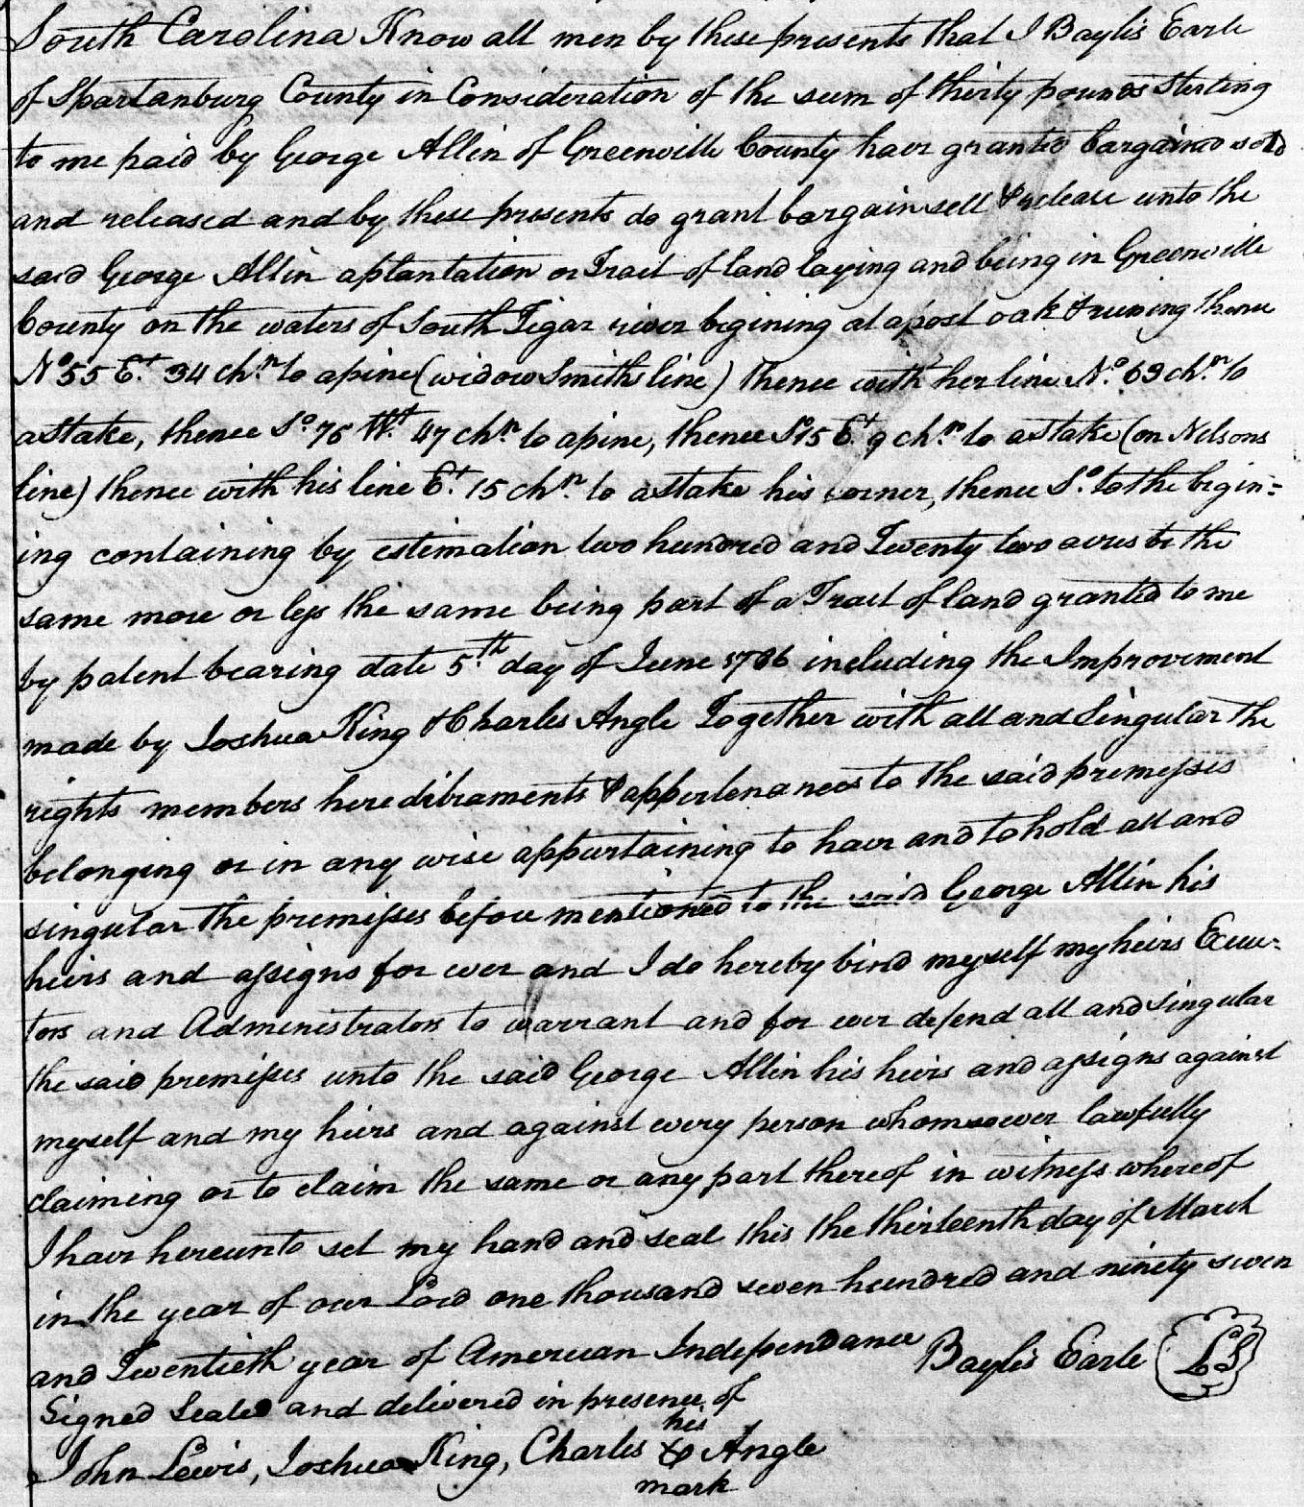 South Carolina Know all men by these presents that I Baylis Earle
of Spartanburg County in Consideration of the sum of thirty pounds Sterling
to me paid by George Allin of Greenville County have granted bargained sold
and released and by these presents do grant bargain sell & release unto the
said George Allin a plantation or Tract of land laying and being in Greenville
County on the waters of South Tigar river begining at a post oak & runing thence
No. 55 Et. 34 chn. to a pine (widow Smiths line) thence with her line No. 69 chn. to
a stake, thence So. 75 Wt. 47 chn. to a pine, thence So. 15 Et. 9 chn. to a stake (on Nelsons
line) thence with his line Et. 15 chn. to a stake his corner, thence So. to the begin=
ing containing by estimation two hundred and Twenty two acres be the
same more or less the same being part of a Tract of land granted to me
by patent bearing date 5th. day of June 1786 including the Improvement
made by Joshua King & Charles Angle Together with all and Singular the
rights members heredibraments & appertenances to the said premesses
belonging or in any wise appurtaining to have and to hold all and
singular the premisses before mentioned to the said George Allin his
heirs and assigns for ever and I do hereby bind myself my heirs Execu-
tors and Administrators to warrant and for ever defend all and Singular
the said premisses unto the said George Allin his heirs and assigns against
myself and my heirs and against every person whomsoever lawfully
claiming or to claim the same or any part thereof in witness whereof
I have hereunto set my hand and seal this the thirteenth day of March
in the year of our Lord one thousand seven hundred and ninety seven
and Twentieth year of American Independance Baylis Earle LS
Signed Sealed and delivered in presence of
John Lewis, Joshua King, Charles his Angle
mark